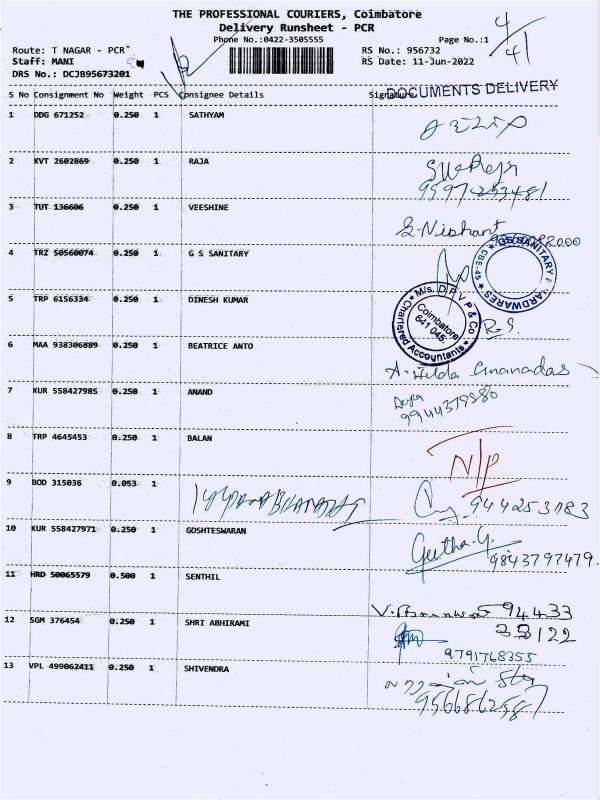 THE PROFESSIONAL COURIERS, Coimbatore
Delivery Runsheet - PCR
Phone No.:0422-3505555
Page No.:1
4/41
Route: T NAGAR - PCR
Staff: MANI
DRS No.: DCJB95673201
RS No.: 956732
RS Date: 11-Jun-2022
S No Consignment No Weight PCS Consignee Details Signature
DOCUMENTS DELIVERY
1 DDG 671252 0.250 1 SATHYAM
2 KVT 2602869 0.250 1 RAJA
3 TUT 136606 0.250 1 VEESHINE
4 TRZ 50560074 0.250 1 G S SANITARY
GS SANITARY HARDWARES CBE-45
5 TRP 6156334 0.250 1 DINESH KUMAR R.S.
M/s. D R V P & Co Chartered Accountants
Coimbatore
641 045.
6 MAA 938306889 0.250 1 BEATRICE ANTO
7 KUR 558427985 0.250 1 ANAND
9944379880
8 TRP 4645453 0.250 1 BALAN N/P
9 BOD 315036 0.053 1 944253183
10 KUR 558427971 0.250 1 GOSHTESWARAN Geetha.G. 9843797479.
11 HRD 50065579 0.500 1 SENTHIL
94433
33122
12 SGM 376454 0.250 1 SHRI ABHIRAMI
9791768355
13 VPL 499062411 0.250 1 SHIVENDRA